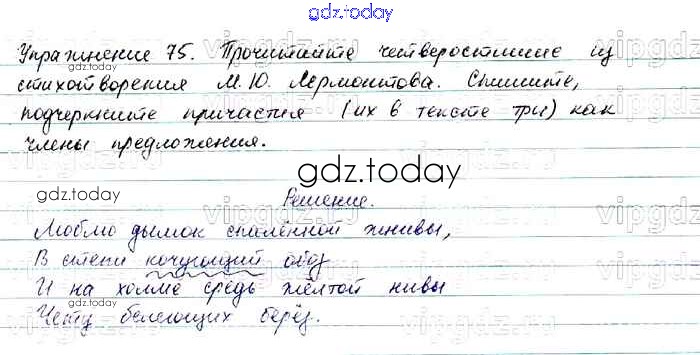 gdz.today
Упражнение 75. Прочитайте четверостишие из
стихотворения М. Ю. Лермонтова. Спишите,
подчеркните причастия (их в тексте три) как
члены предложения.
gdz.today
gdz.today
Решение.
Люблю дымок спалённой жнивы,
В степи кочующий обоз
И на холме средь жёлтой нивы
gdz.today
Чету белеющих берёз.